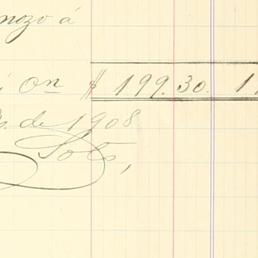 nozo á
i on $ 199.30. 1
de 1908
Soto,